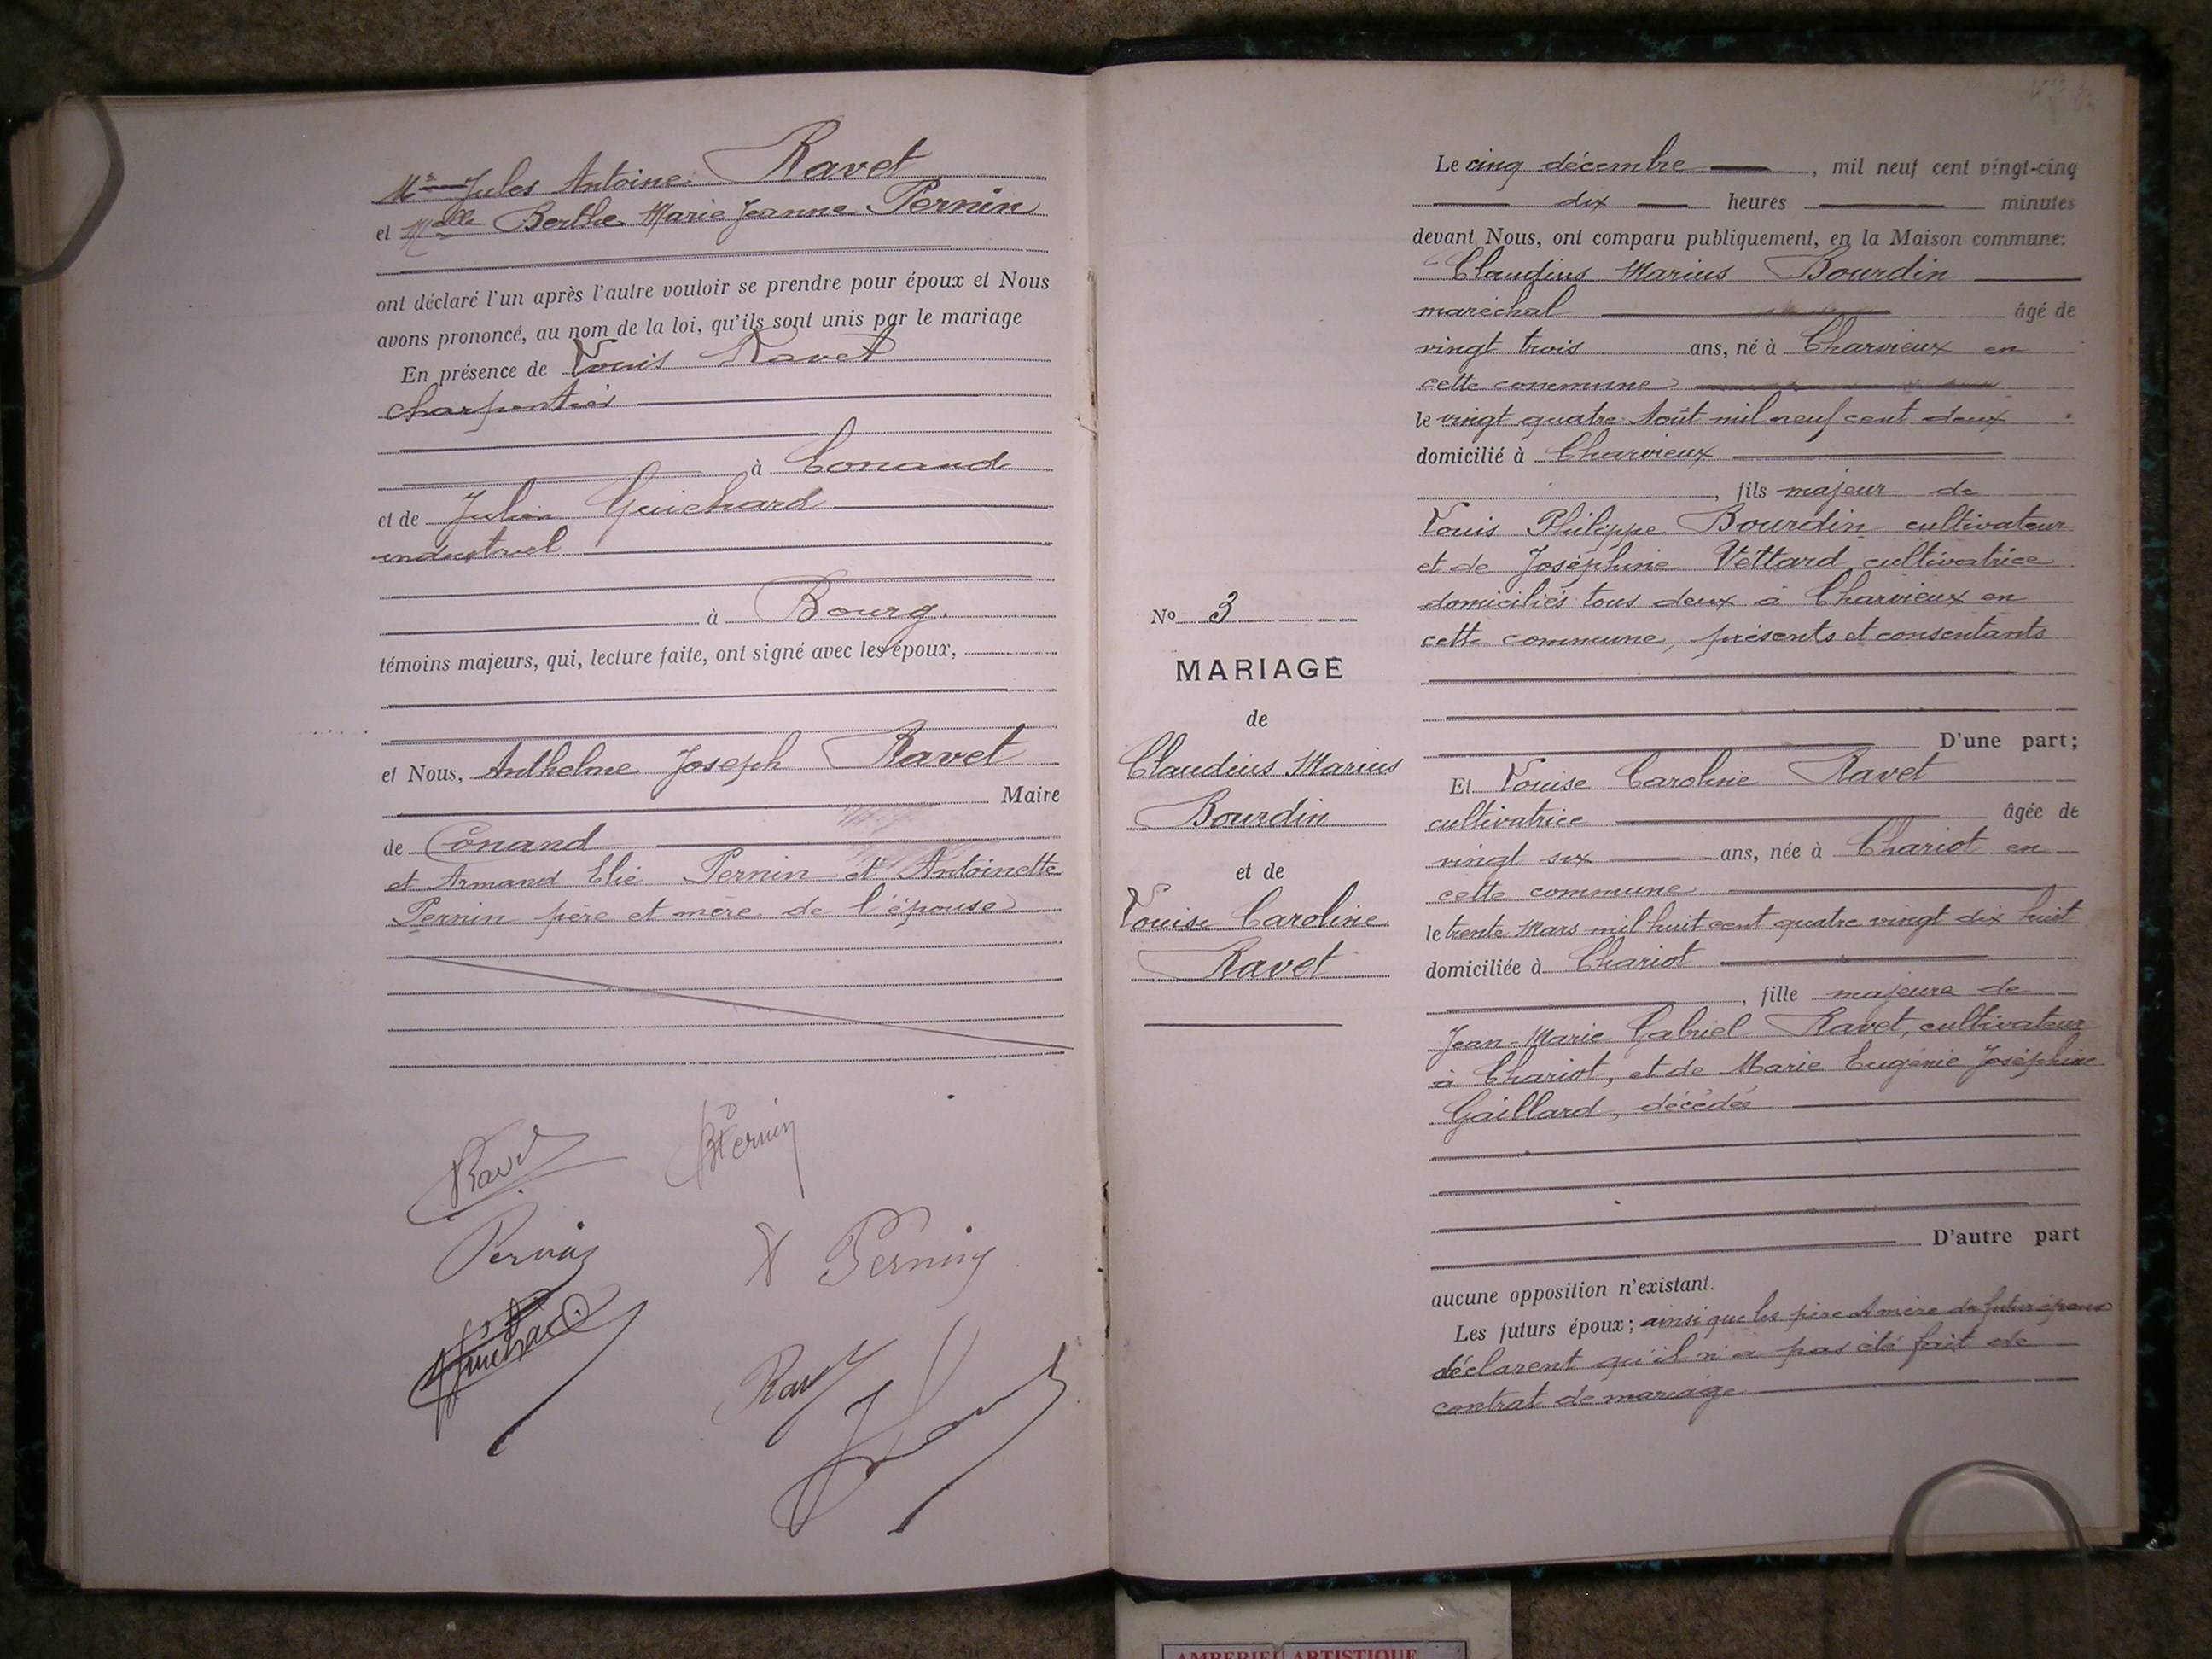 Mr Jules Antoine Ravet
et Melle Berthe Marie Jeanne Pernin
ont déclaré l'un après l'autre vouloir se prendre pour époux et Nous
avons prononcé, au nom de la loi, qu'ils sont unis par le mariage
En présence de Louis Ravet
charpentier
à Conand
et de Julien Guichard
industriel
à Bourg.
témoins majeurs, qui, lecture faite, ont signé avec les époux,
et Nous, Anthelme Joseph Ravet
Maire
de Conand
et Armand Elie Pernin et Antoinette
Pernin père et mère de l'épouse
Ravet
BPernin
Pernin
Pernin
Guichard
Ravet
No 3
MARIAGE
de
Claudius Marius
Bourdin
et de
Louise Caroline
Ravet
Le cinq décembre, mil neuf cent vingt-cinq
dix heures minutes
devant Nous, ont comparu publiquement, en la Maison commune:
Claudius Marius Bourdin
maréchal âgé de
vingt trois ans, né à Charvieux en
cette commune
le vingt quatre Août mil neuf cent deux
domicilié à Charvieux
, fils majeur de
Louis Philippe Bourdin cultivateur
et de Joséphine Vettard cultivatrice
domiciliés tous deux à Charvieux en
cette commune, présents et consentants
D'une part;
Et Louise Caroline Ravet
cultivatrice âgée de
vingt six ans, née à Chariot en
cette commune
le trente Mars mil huit cent quatre vingt dix huit
domiciliée à Chariot
, fille majeure de
Jean-Marie Gabriel Ravet, cultivateur
à Chariot, et de Marie Eugénie Joséphine
Gaillard, décédée
D'autre part
aucune opposition n'existant.
Les futurs époux; ainsi que les père et mère du futur époux
déclarent qu'il n'a pas été fait de
contrat de mariage
AMBERIEU ARTISTIQUE